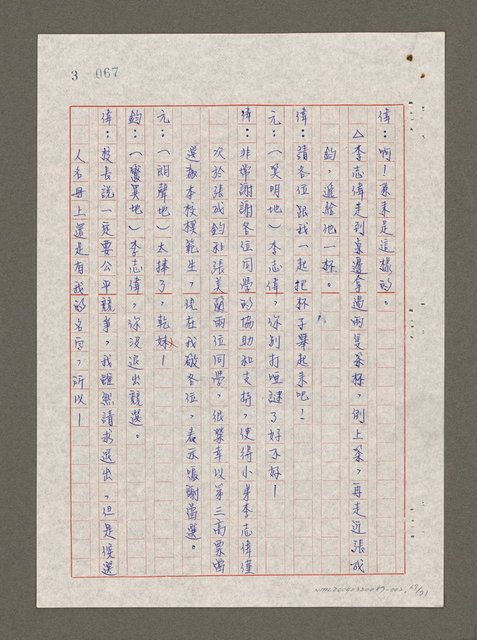 3 067
偉：啊！原來是這樣的。
△李志偉走到桌邊拿過兩隻茶杯，倒上茶，再走近張成
鈞，遞給他一杯。
偉：請各位跟我一起把杯子舉起來吧！
元：（英明地）李志偉，你別打啞謎了好不好！
偉：非常謝謝各位同學的協助和支持，使得小弟李志偉僅
次於張成鈞和張美蘭兩位同學，很榮幸以第三高票當
選為本校模範生，現在我敬各位，表示感謝當選。
元：（朗聲地）太棒了，乾杯！
鈞：（驚異地）李志偉，你沒退出競選。
偉：校長說一定要公平競爭，我雖然請求退出，但是候選
人名冊上還是有我的名字，所以！
17/21